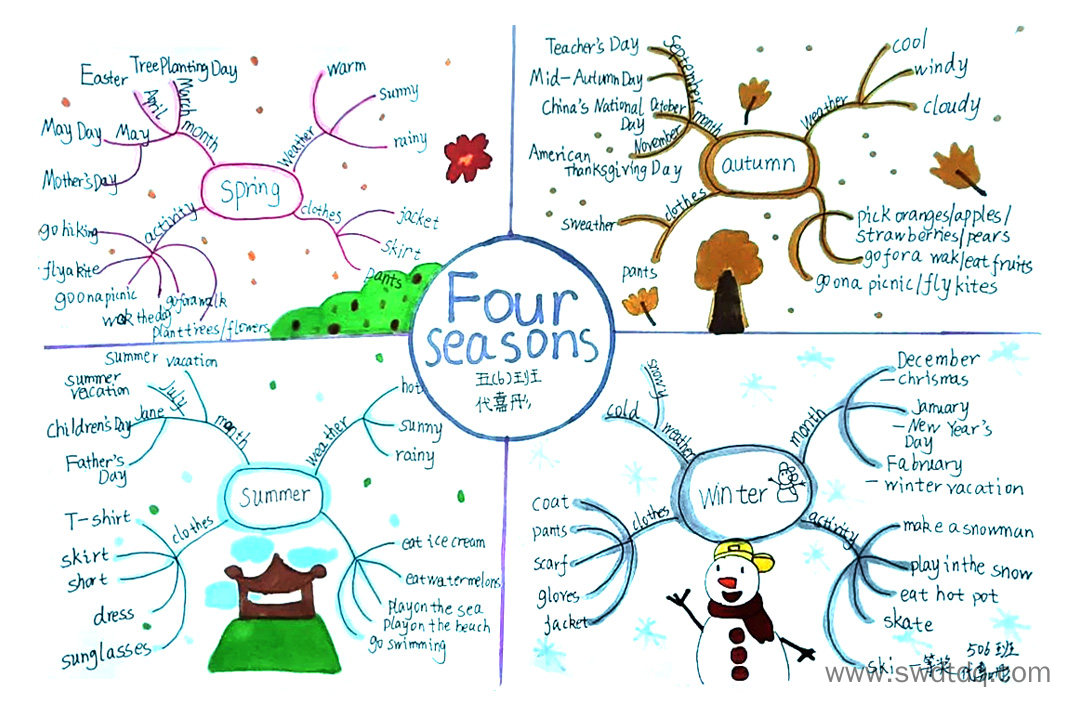 Four
seasons
五(6)班
代嘉彤
Spring
month
March
Tree Planting Day
April
Easter
May
May Day
Mother's Day
weather
warm
sunny
rainy
clothes
jacket
skirt
pants
activity
go hiking
fly a kite
go on a picnic
go for a walk
plant trees/flowers
autumn
month
September
Teacher's Day
Mid-Autumn Day
October
China's National
Day
November
American
Thanksgiving Day
weather
cool
windy
cloudy
clothes
sweather
pants
pick oranges/apples/
strawberries/pears
go for a wak/eat fruits
go on a picnic/fly kites
Summer
month
summer vacation
July
summer
vacation
Jane
Children's Day
Father's
Day
weather
hot
sunny
rainy
clothes
T-shirt
skirt
short
dress
sunglasses
eat ice cream
eat watermelons
play on the sea
play on the beach
go swimming
winter
weather
snowy
cold
month
December
-chrismas
Jamuary
-New Year's
Day
Fabruary
-winter vacation
clothes
coat
pants
scarf
gloves
jacket
activity
make a snowman
play in the snow
eat hot pot
skate
ski
一等奖
506班
代嘉彤
www.swdtdq.com